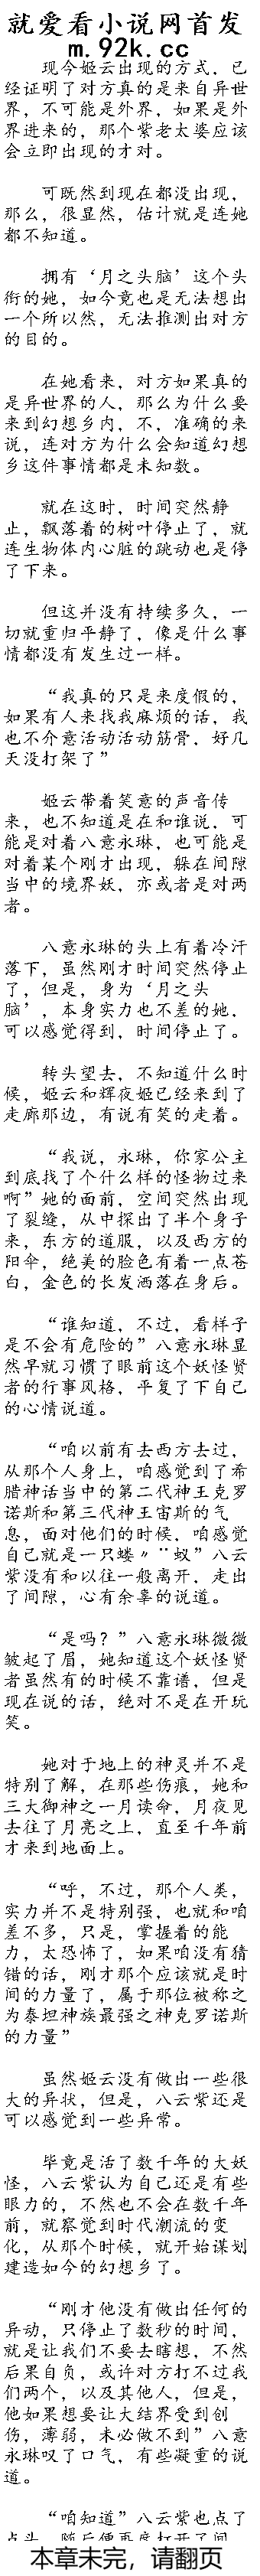 就爱看小说网首发
m.92k.cc
现今姬云出现的方式，已
经证明了对方真的是来自异世
界，不可能是外界，如果是外
界进来的，那个紫老太婆应该
会立即出现的才对。
可既然到现在都没出现，
那么，很显然，估计就是连她
都不知道。
拥有‘月之头脑’这个头
衔的她，如今竟也是无法想出
一个所以然，无法推测出对方
的目的。
在她看来，对方如果真的
是异世界的人，那么为什么要
来到幻想乡内，不，准确的来
说，连对方为什么会知道幻想
乡这件事情都是未知数。
就在这时，时间突然静
止，飘落着的树叶停止了，就
连生物体内心脏的跳动也是停
了下来。
但这并没有持续多久，一
切就重归平静了，像是什么事
情都没有发生过一样。
“我真的只是来度假的，
如果有人来找我麻烦的话，我
也不介意活动活动筋骨，好几
天没打架了”
姬云带着笑意的声音传
来，也不知道是在和谁说，可
能是对着八意永琳，也可能是
对着某个刚才出现，躲在间隙
当中的境界妖，亦或者是对两
者。
八意永琳的头上有着冷汗
落下，虽然刚才时间突然停止
了，但是，身为‘月之头
脑’，本身实力也不差的她，
可以感觉得到，时间停止了。
转头望去，不知道什么时
候，姬云和辉夜姬已经来到了
走廊那边，有说有笑的走着。
“我说，永琳，你家公主
到底找了个什么样的怪物过来
啊”她的面前，空间突然出现
了裂缝，从中探出了半个身子
来，东方的道服，以及西方的
阳伞，绝美的脸色有着一点苍
白，金色的长发洒落在身后。
“谁知道，不过，看样子
是不会有危险的”八意永琳显
然早就习惯了眼前这个妖怪贤
者的行事风格，平复了下自己
的心情说道。
“咱以前有去西方去过，
从那个人身上，咱感觉到了希
腊神话当中的第二代神王克罗
诺斯和第三代神王宙斯的气
息，面对他们的时候，咱感觉
自己就是一只蝼〃¨蚁”八云
紫没有和以往一般离开，走出
了间隙，心有余辜的说道。
“是吗？”八意永琳微微
皱起了眉，她知道这个妖怪贤
者虽然有的时候不靠谱，但是
现在说的话，绝对不是在开玩
笑。
她对于地上的神灵并不是
特别了解，在那些伤痕，她和
三大御神之一月读命，月夜见
去往了月亮之上，直至千年前
才来到地面上。
“呼，不过，那个人类，
实力并不是特别强，也就和咱
差不多，只是，掌握着的能
力，太恐怖了，如果咱没有猜
错的话，刚才那个应该就是时
间的力量了，属于那位被称之
为泰坦神族最强之神克罗诺斯
的力量”
虽然姬云没有做出一些很
大的异状，但是，八云紫还是
可以感觉到一些异常。
毕竟是活了数千年的大妖
怪，八云紫认为自己还是有些
眼力的，不然也不会在数千年
前，就察觉到时代潮流的变
化，从那个时候，就开始谋划
建造如今的幻想乡了。
“刚才他没有做出任何的
异动，只停止了数秒的时间，
就是让我们不要去瞎想，不然
后果自负，或许对方打不过我
们两个，以及其他人，但是，
他如果想要让大结界受到创
伤，薄弱，未必做不到”八意
永琳叹了口气，有些凝重的说
道。
“咱知道”八云紫也点了
点头，随后便再度打开了间
本章未完，请翻页